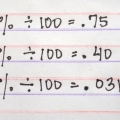 % ÷100 = .75
% ÷100 = .40
% ÷100 = .031